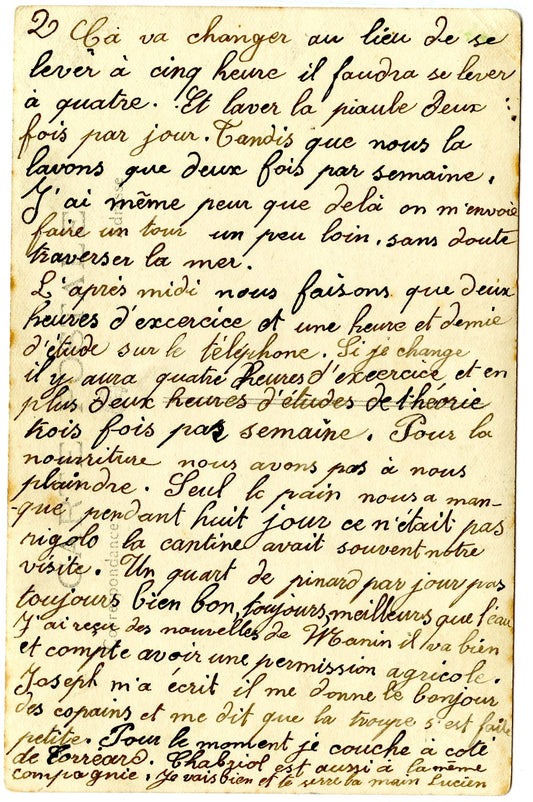 2 Ça va changer au lieu de se
lever à cinq heure il faudra se lever
à quatre. Et laver la piaule deux
fois par jour. Tandis que nous la
lavons que deux fois par semaine.
J'ai même peur que delà on m'envoie
faire un tour un peu loin, sans doute
traverser la mer.
L'après midi nous faisons que deux
heures d'excercice et une heure et demie
d'étude sur le téléphone. Si je change
il y aura quatre heures d'exercice et en
plus deux heures d'études de théorie
trois fois par semaine. Pour la
nourriture nous avons pas à nous
plaindre. Seul le pain nous a man-
-qué pendant huit jour ce n'était pas
rigolo la cantine avait souvent notre
visite. Un quart de pinard par jour pas
toujours bien bon, toujours meilleurs que l'eau
J'ai reçu des nouvelles de Manin il va bien
et compte avoir une permission agricole.
Joseph m'a écrit il me donne le bonjour
des copains et me dit que la troupe s'est faite
petite. Pour le moment je couche à coté
de Torreard. Chabriol est aussi à la même
compagnie. Je vais bien et te serre la main Lucien
CARTE POSTALE
Correspondance
Adresse